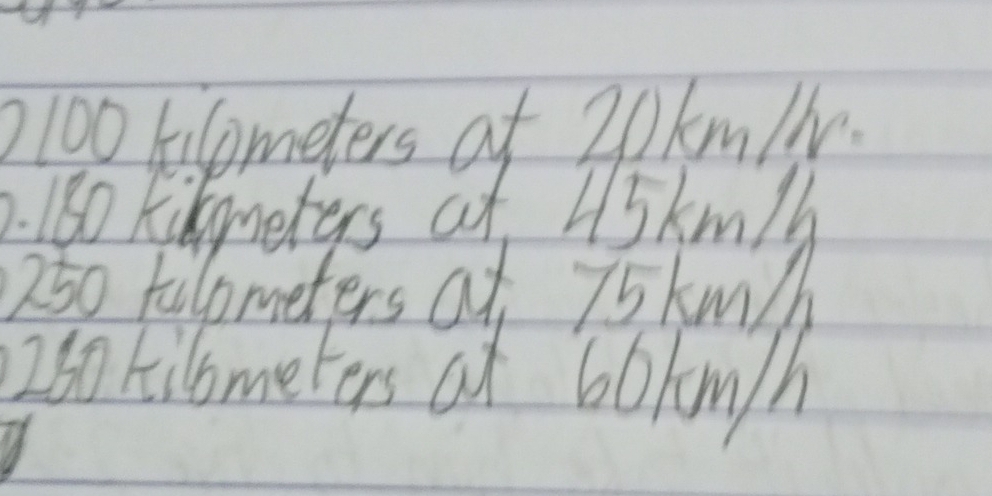 )100 kilometers at 20km/hr.
).180 kilometers at 45km/h
)250 kilometers at 75km/h
)280 kilometers at 60km/h